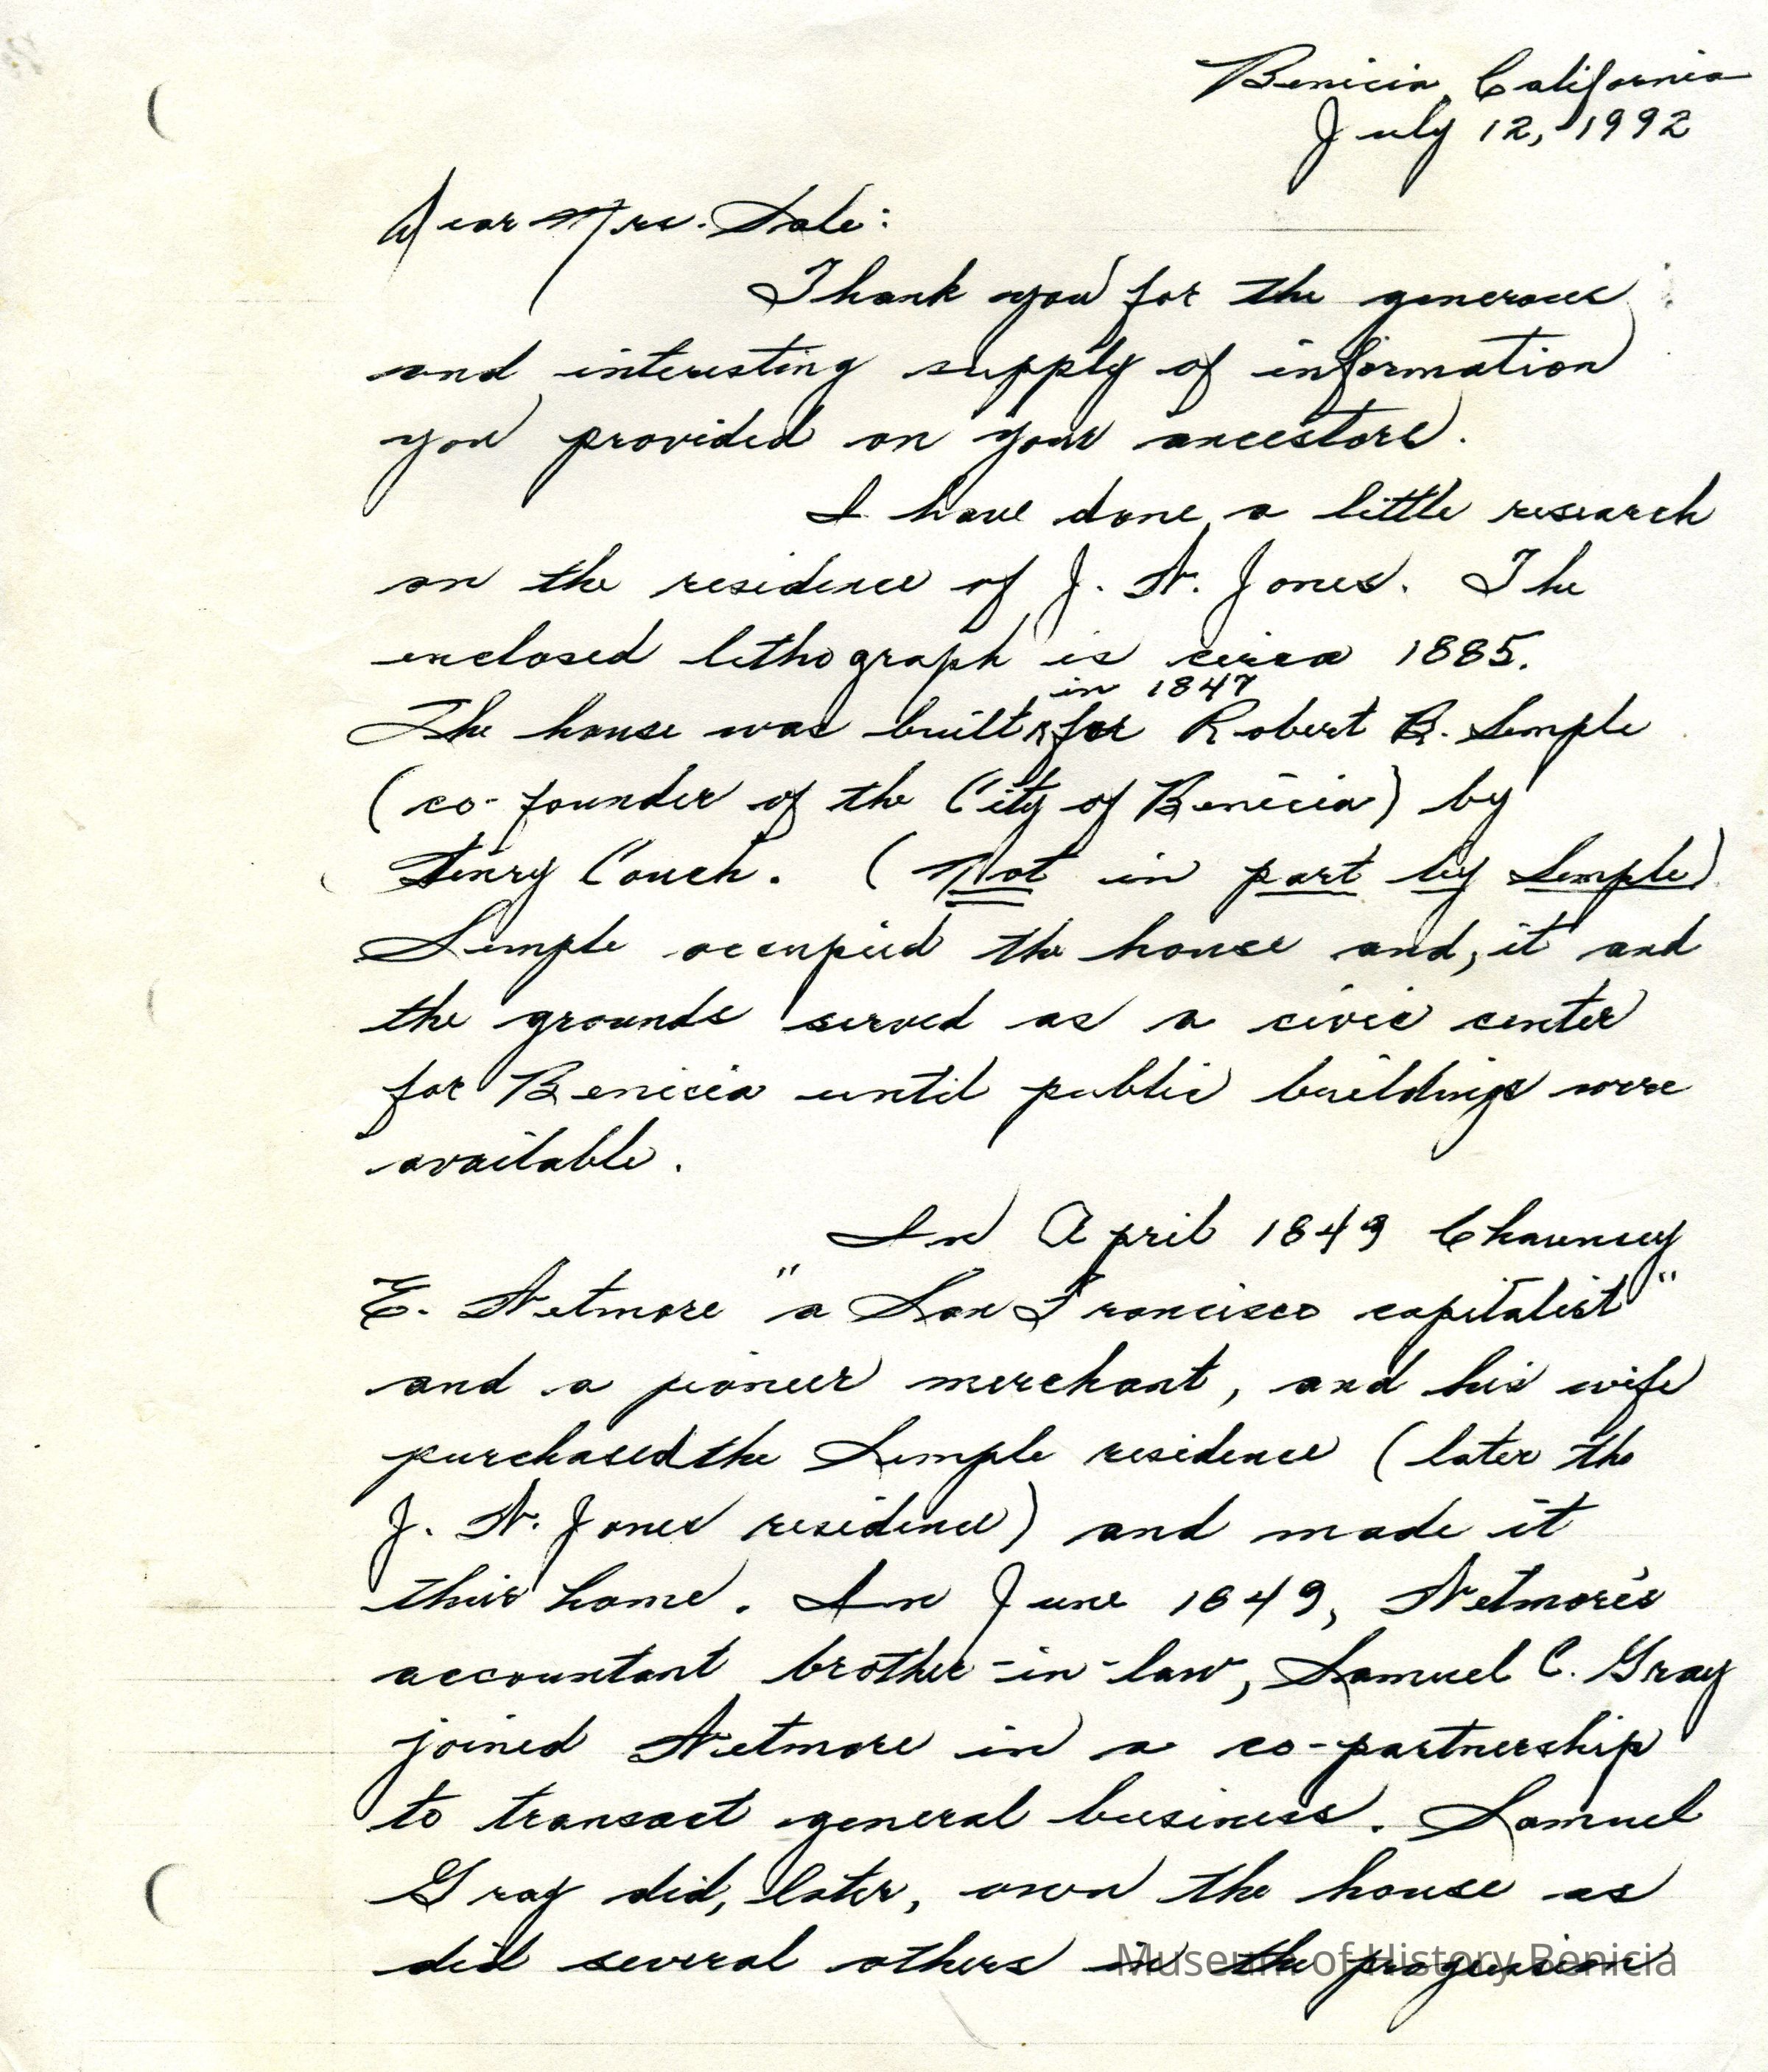 Benicia, California
July 12, 1992
Dear Mrs. Sale:
Thank you for the generous
and interesting supply of information
you provided on your ancestors.
I have done a little research
on the residence of J. W. Jones. The
enclosed lithograph is circa 1885.
in 1847
The house was built ^ for Robert B. Semple
(co-founder of the City of Benicia) by
Henry Couch. (Not in part by Semple)
Semple occupied the house and, it and
the grounds served as a civic center
for Benicia until public buildings were
available.
In April 1849 Chauncey
E. Wetmore "a San Francisco capitalist"
and a pioneer merchant, and his wife
purchased the Semple residence (later the
J. W. Jones residence) and made it
their home. In June 1849, Wetmore's
accountant brother-in-law, Samuel C. Gray
joined Wetmore in a co-partnership
to transact general business. Samuel
Gray did, later, own the house as
did several others in the progression
Museum of History Benicia